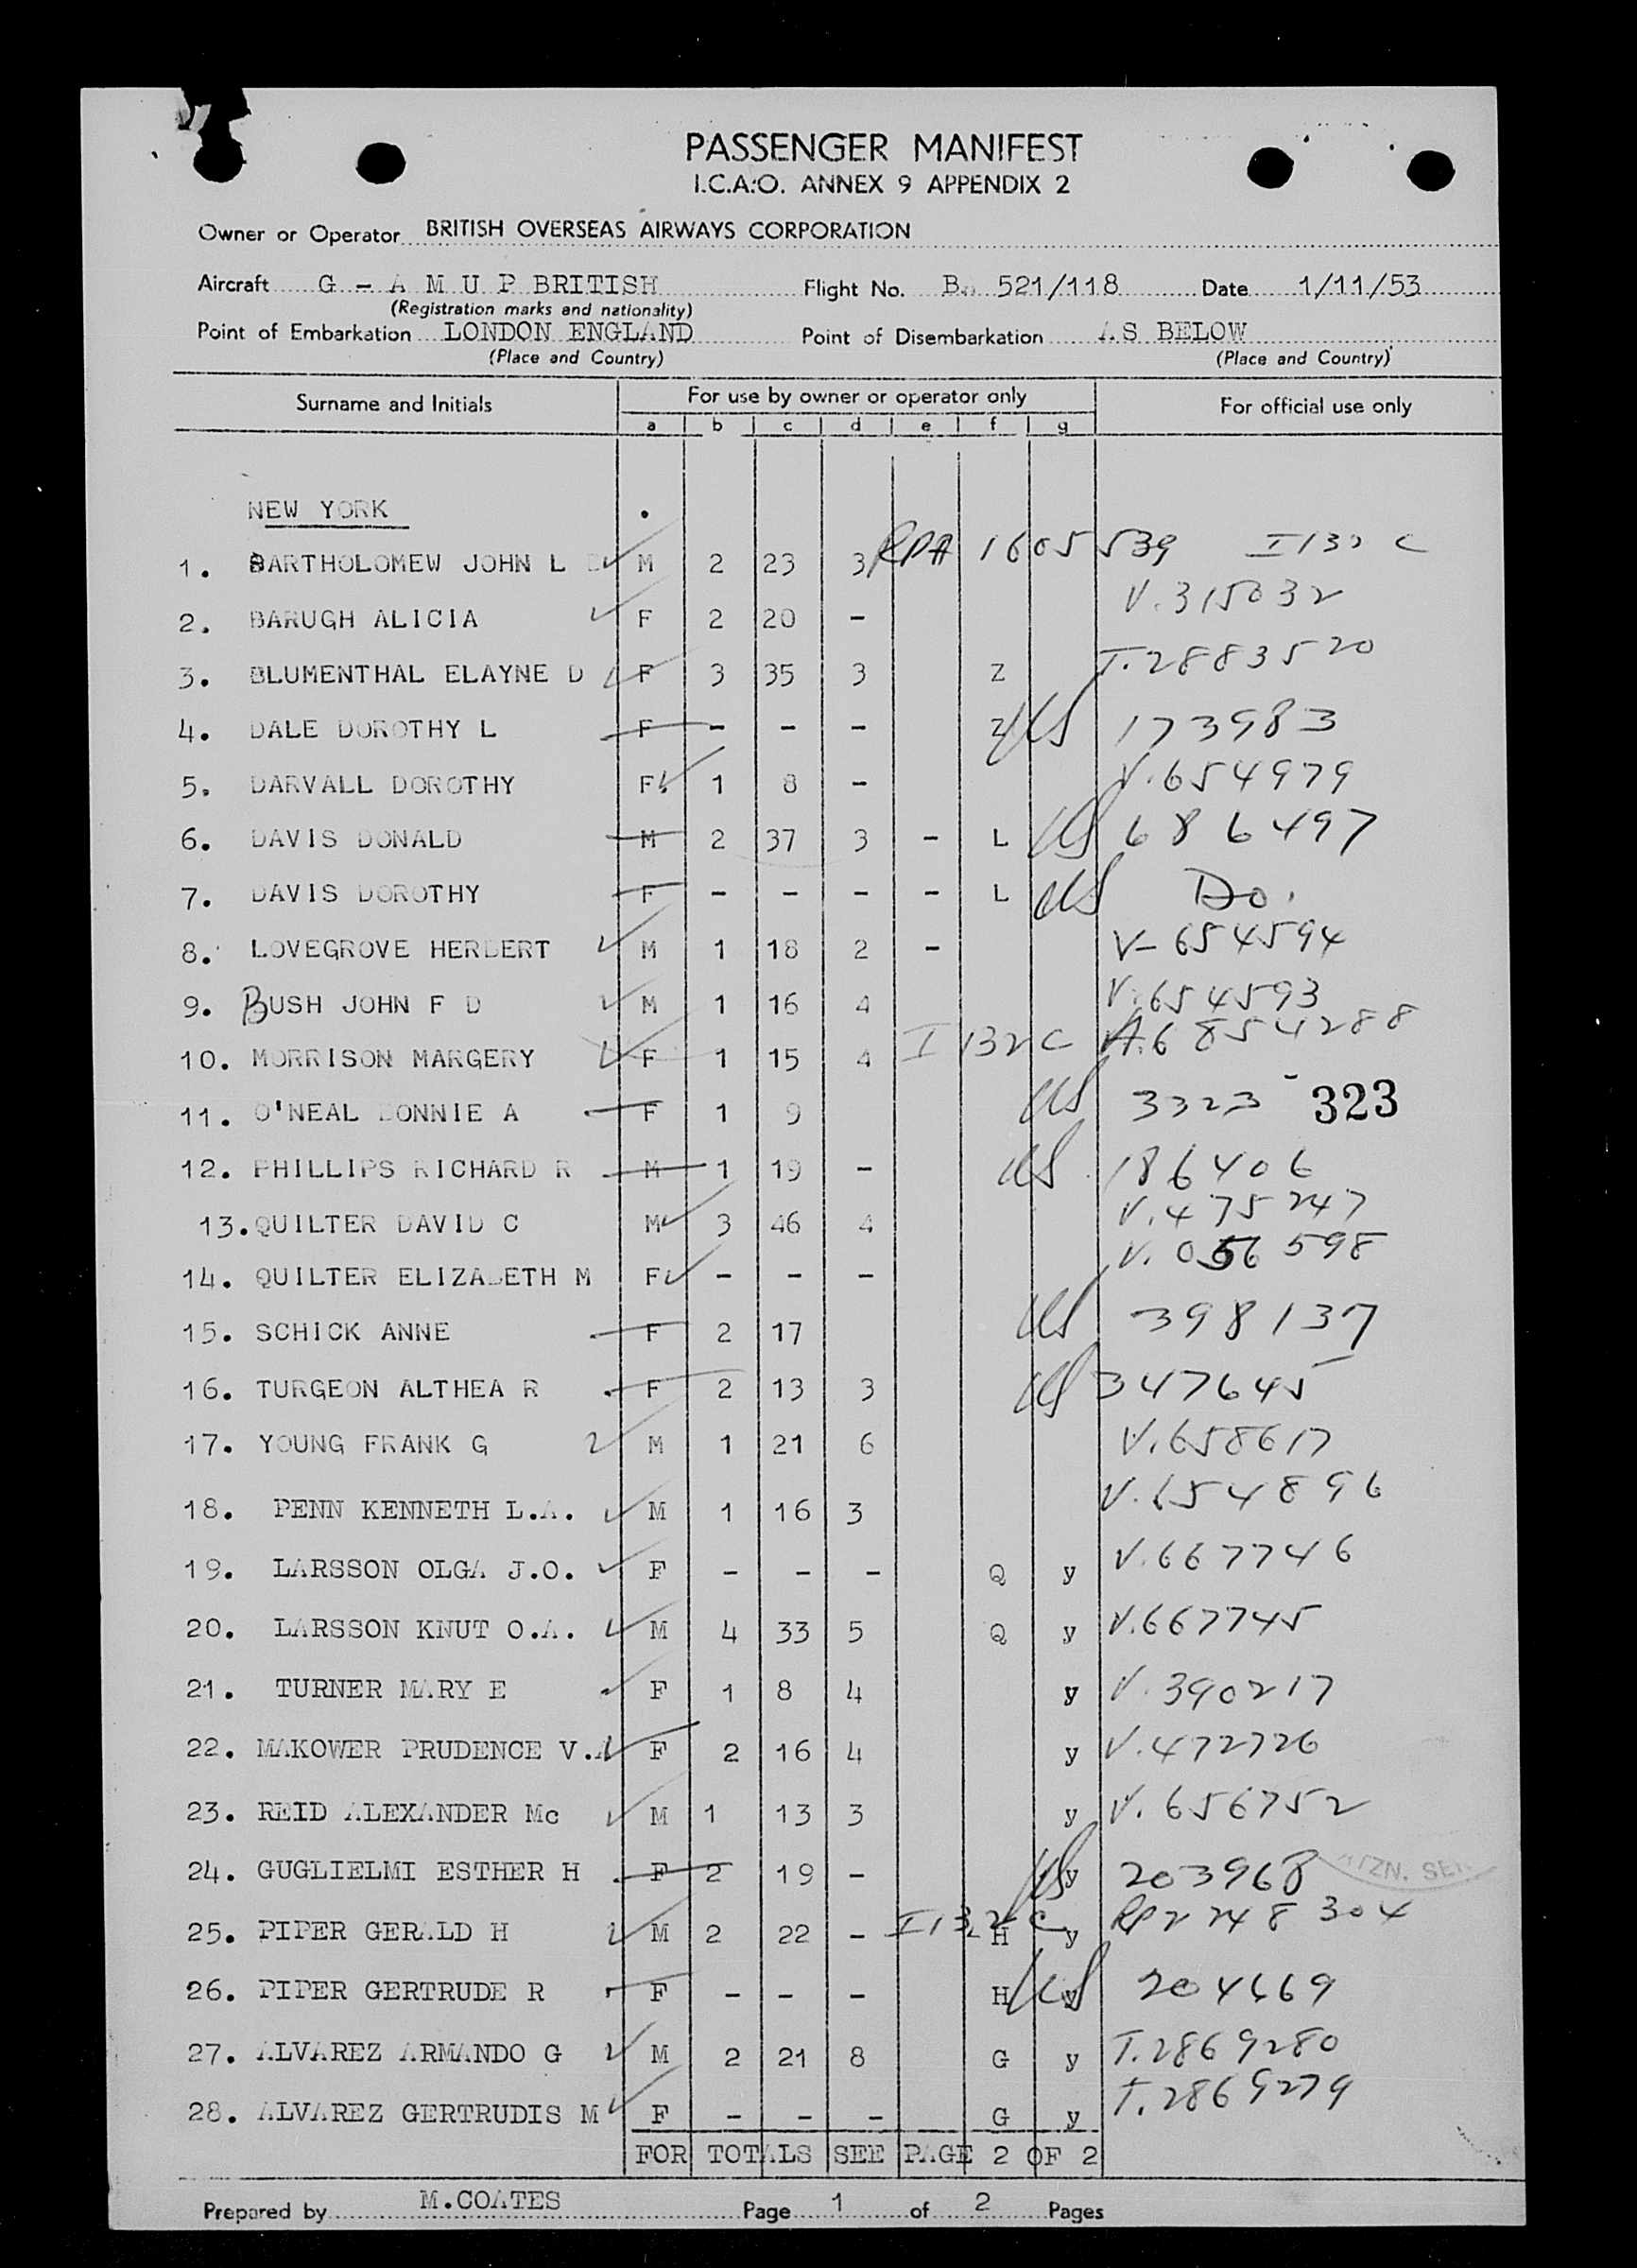 PASSENGER MANIFEST
I.C.A.O. ANNEX 9 APPENDIX 2
Owner or Operator BRITISH OVERSEAS AIRWAYS CORPORATION
Aircraft G - A M U P BRITISH Flight No. B. 521/118 Date 1/11/53
(Registration marks and nationality)
Point of Embarkation LONDON ENGLAND Point of Disembarkation AS BELOW
(Place and Country) (Place and Country)
Surname and Initials For use by owner or operator only For official use only
a b c d e f g
NEW YORK
1. BARTHOLOMEW JOHN L M 2 23 3 RPA 1605 539 I 132 C
2. BARUGH ALICIA F 2 20 - V.315032
3. BLUMENTHAL ELAYNE D F 3 35 3 Z T.2883520
4. DALE DOROTHY L F - - - Z US 173983
5. DARVALL DOROTHY F 1 8 - V.654979
6. DAVIS DONALD M 2 37 3 - L US 686497
7. DAVIS DOROTHY F - - - - L US Do.
8. LOVEGROVE HERBERT M 1 18 2 - V-654594
9. BUSH JOHN F D M 1 16 4 V.654593
10. MORRISON MARGERY F 1 15 4 I 132 C A.6854288
11. O'NEAL BONNIE A F 1 9 US 3323 - 323
12. PHILLIPS RICHARD R M 1 19 - US 186406
13. QUILTER DAVID C M 3 46 4 V.475247
14. QUILTER ELIZABETH M F - - - V. 598
15. SCHICK ANNE F 2 17 US 398137
16. TURGEON ALTHEA R F 2 13 3 US 347645
17. YOUNG FRANK G M 1 21 6 V.658617
18. PENN KENNETH L.A. M 1 16 3 V.654896
19. LARSSON OLGA J.O. F - - - Q y V.667746
20. LARSSON KNUT O.A. M 4 33 5 Q y V.667745
21. TURNER MARY E F 1 8 4 y V.390217
22. MAKOWER PRUDENCE V.A F 2 16 4 y V.472726
23. REID ALEXANDER Mc M 1 13 3 y V.656752
24. GUGLIELMI ESTHER H F 2 19 - US y 203968
25. PIPER GERALD H M 2 22 - I 132 C H y RP2 248 304
26. PIPER GERTRUDE R F - - - H US y 204669
27. ALVAREZ ARMANDO G M 2 21 8 G y T.2869280
28. ALVAREZ GERTRUDIS M F - - - G y T.2869279
FOR TOTALS SEE PAGE 2 OF 2
Prepared by M.COATES Page 1 of 2 Pages